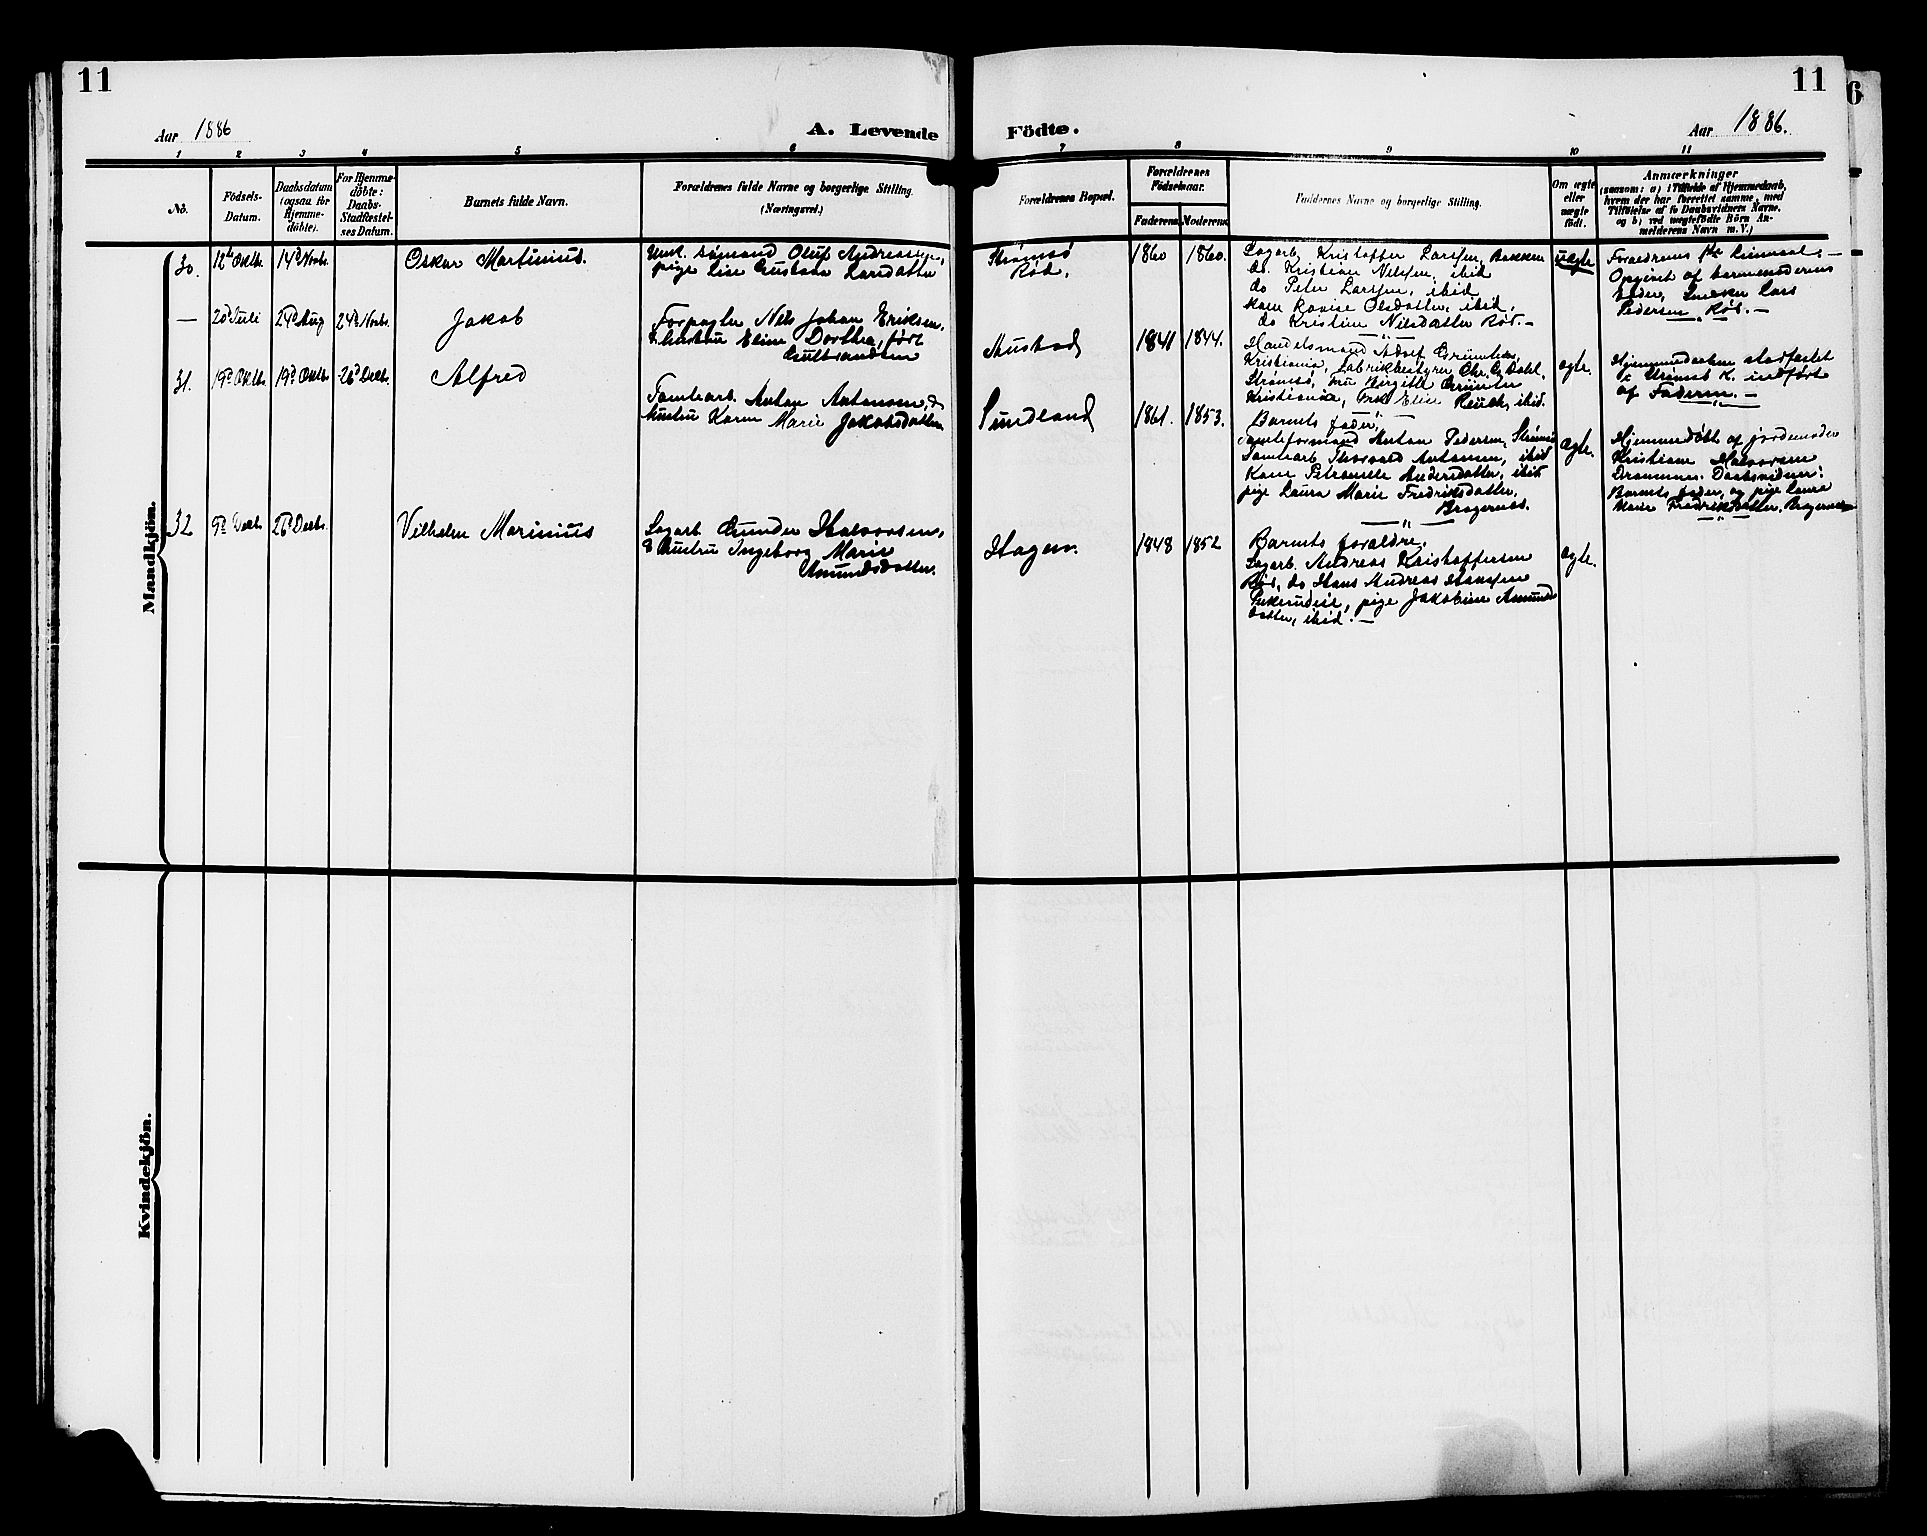 11
11
6
Aar 1886
A. Levende
Födte.
Aar 1886.
1 2 3 4 5 6 7 8 9 10 11
No.
Födsels-
Datum.
Daabsdatum
(ogsaa for
Hjemme-
döbte).
For Hjemme-
döbte:
Daabs-
Stadfæstel-
ses Datum.
Barnets fulde Navn.
Forældrenes fulde Navne og borgerlige Stilling.
(Næringsvei.)
Forældrenes Bopæl.
Forældrenes
Födselsaar.
Faderens. Moderens.
Faddernes Navne og borgerlige Stilling.
Om ægte
eller
uægte
födt.
Anmærkninger
(saasom: a) i Tilfælde af Hjemmedaab,
hvem der har forrettet samme, med
Tilföielse af to Daabsvidners Navne,
og b) ved uægtefödte Börn An-
melderens Navn m. V.)
Mandkjön.
30.
12te Oktb.
14d Novb.
Oskar Martinius.
Unk. sømand Oluf Andreassen,
pige Lise Gustava Larsdatter
Strømsø
Rød.
1860 1860.
Sagarb. Kristoffer Larssen, Bakken
do. Kristian Nilssen, ibid
do Peter Larssen, ibid
kone Lovise Olsdatter, ibid,
do Kristine Nilsdatter Rød.—
uægte
Forældrenes 1ste Leiermaal.—
Opgivet af barnemoderens
Fader, Lars
Pedersen, Rød.—
—
20d Juli
24d Aug
24d Novb.
Jakob
Forpagter Nils Johan Eriksen,
& hustru Eline Dorthea, født
Gulbrandsen
Mustad
1841 1844.
Handelsmand Adolf Grünther,
Kristiania, Fabrikbestyrer Chr. G. Dahl,
Strømsø, fru Birgitte Grünter
Kristiania, Frk Elise Reusch, ibid.
ægte.
Hjemmedaaben stadfæstet
i Strømsø K. indført
af Faderen.—
31.
19d Oktb.
19d Oktb.
26d Decb.
Alfred
Tomtearb. Anton Antonsen, &
hustru Karen Marie Jakobsdatter
Sundland
1861. 1853.
Barnets fader,
Tomteformand Anton Pedersen, Strømsø
Tomtearb. Thorvald Antonsen, ibid
Kone Petronelle Andersdatter, ibid
pige Laura Marie Fredriksdatter,
Bragernæs.
ægte.
Hjemmedøbt af jordemoder
Kristiane Halvorsen
Drammen. Daabsvidner:
Barnets fader, og pige Laura
Marie Fredriksdatter, Bragernæs
32
9d Decb.
26d Decb.
Vilhelm Marinius
Sagarb. Gunder Halvorsen,
& hustru Ingeborg Marie
Amundsdatter.
Hagen.
1848 1852
Barnets forældre,
Sagarb. Andreas Kristoffersen
Rød, do Hans Andreas Hanssen
pige Jakobine Amunds
datter, ibid.—
ægte.
Kvindekjön.